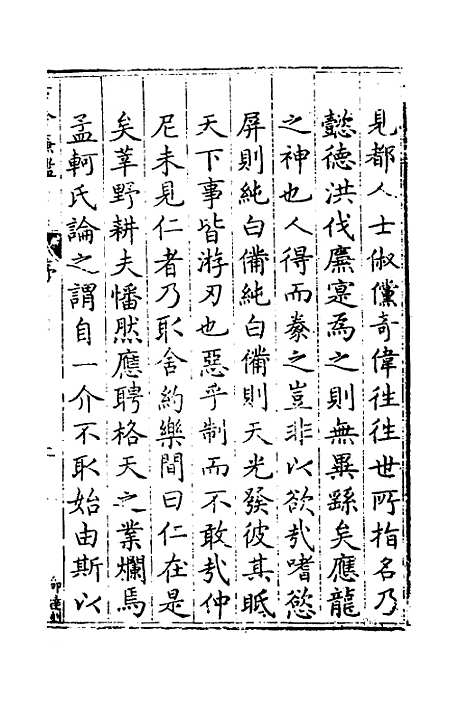 見都人士俶儻奇偉往往世所指名乃
懿德洪伐廉寔為之則無異繇矣應龍
之神也人得而豢之豈非以欲哉嗜慾
屏則純白備純白備則天光發彼其眡
天下事皆游刃也惡乎制而不敢哉仲
尼未見仁者乃取舍約樂間曰仁在是
矣莘野耕夫幡然應聘格天之業爛焉
孟軻氏論之謂自一介不取始由斯以
古今廉鑑
序